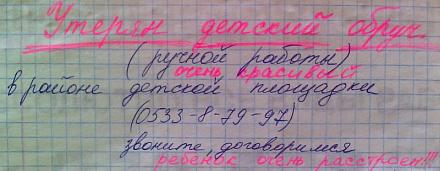 Утерян детский обруч
(ручной работы)
очень красивый
в районе детской площадки
(0533-8-79-97)
звоните, договоримся
ребенок очень расстроен!!!